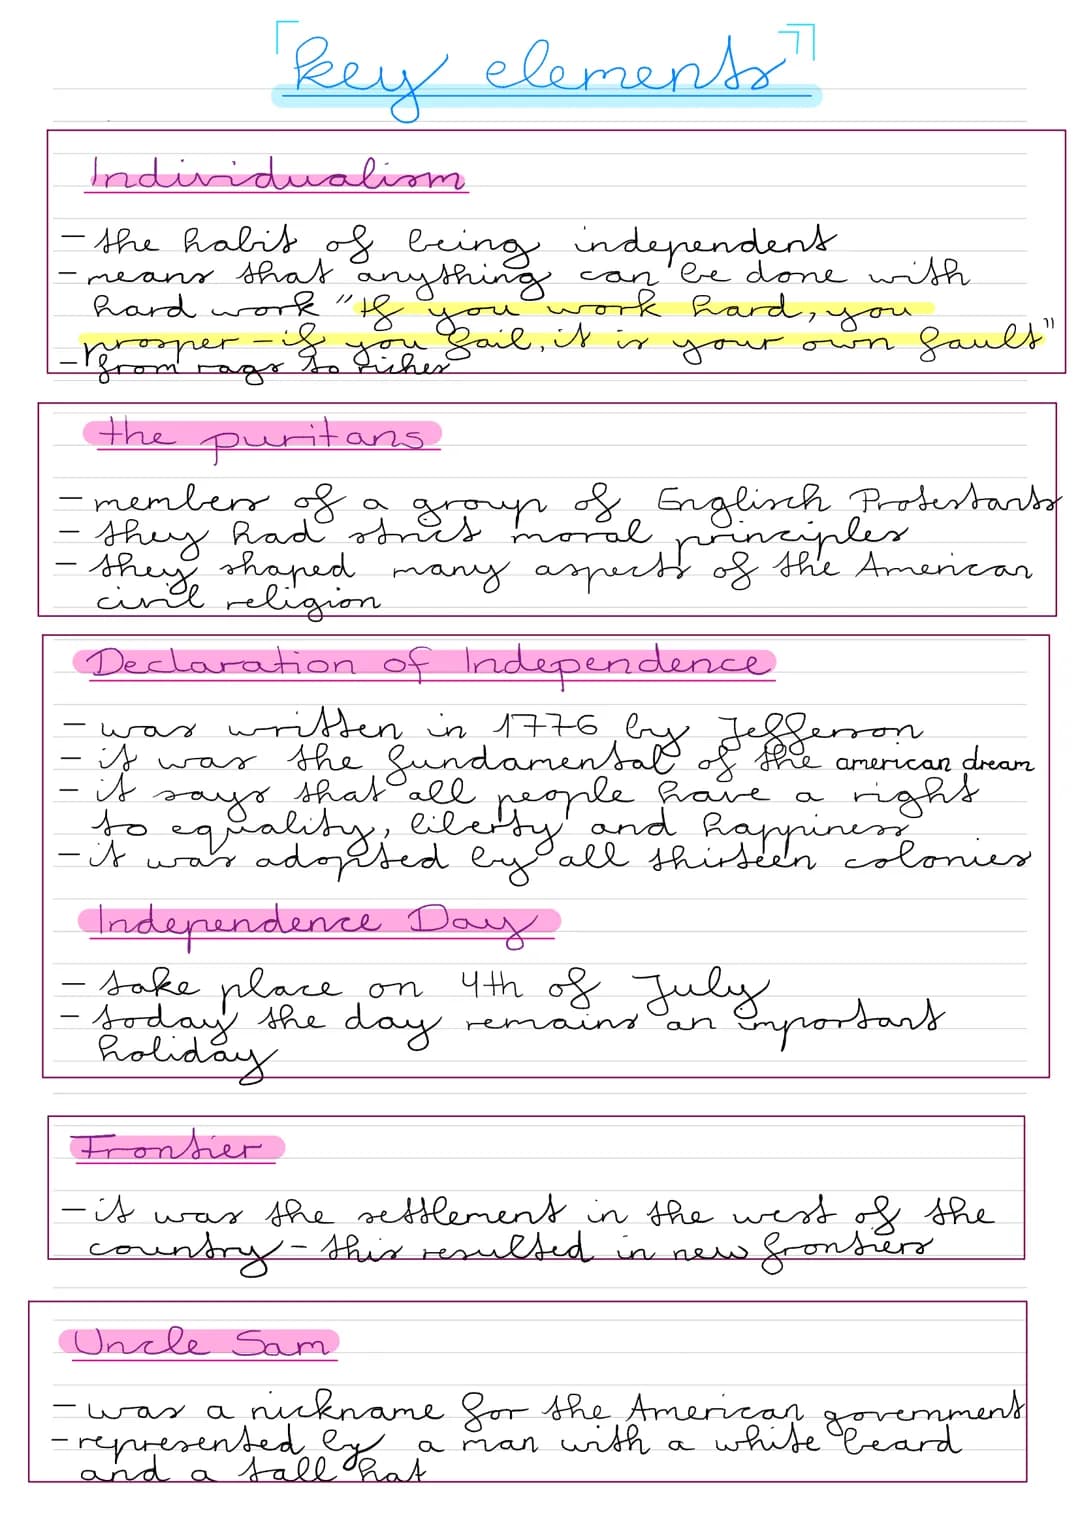 key elements
Individualism
- the habit of being independent
- means that anything can be done with
hard work "If you work hard, you
prosper - if you fail, it is your own fault"
- from rags to riches
the puritans
- members of a group of Englisch Protestants
- they had strict moral principles
- they shaped many aspects of the American
civil religion
Declaration of Independence
- was written in 1776 by Jefferson
- it was the fundamental of the american dream
- it says that all people have a right
to equality, liberty and happiness
- it was adopted by all thirteen colonies
Independence Day
- take place on 4th of July
- today the day remains an important
holiday
Frontier
- it was the settlement in the west of the
country - this resulted in new frontiers
Uncle Sam
- was a nickname for the American government
- represented by a man with a white beard
and a tall hat